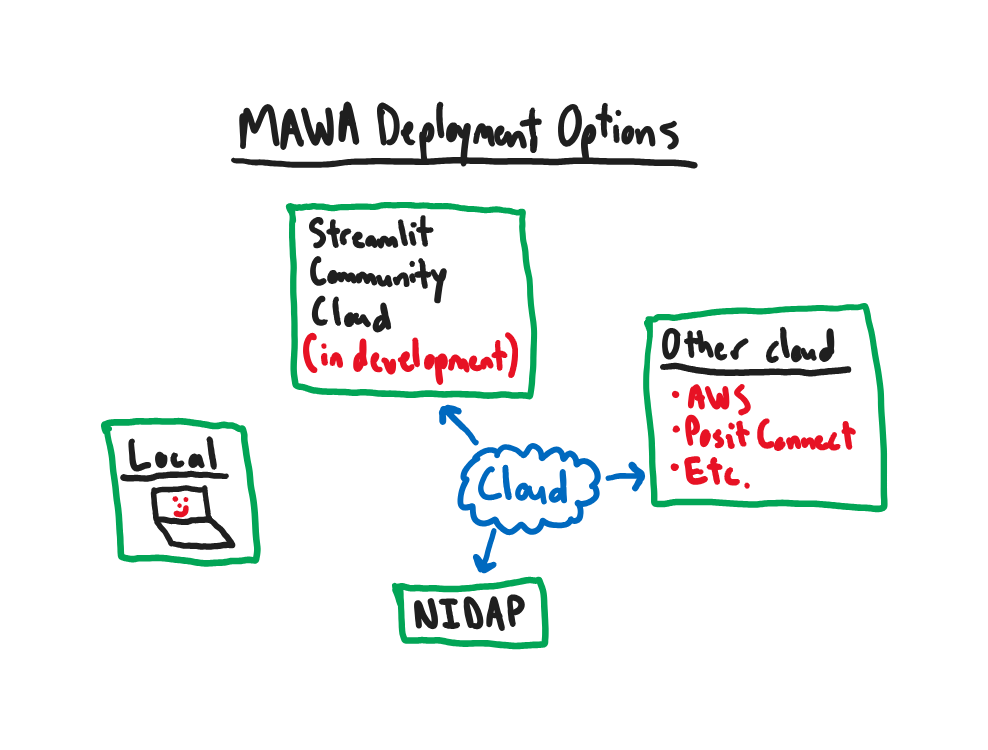 MAWA Deployment Options
Streamlit
Community
Cloud
(in development)
Other cloud
• AWS
• Posit Connect
• Etc.
Local
Cloud
NIDAP